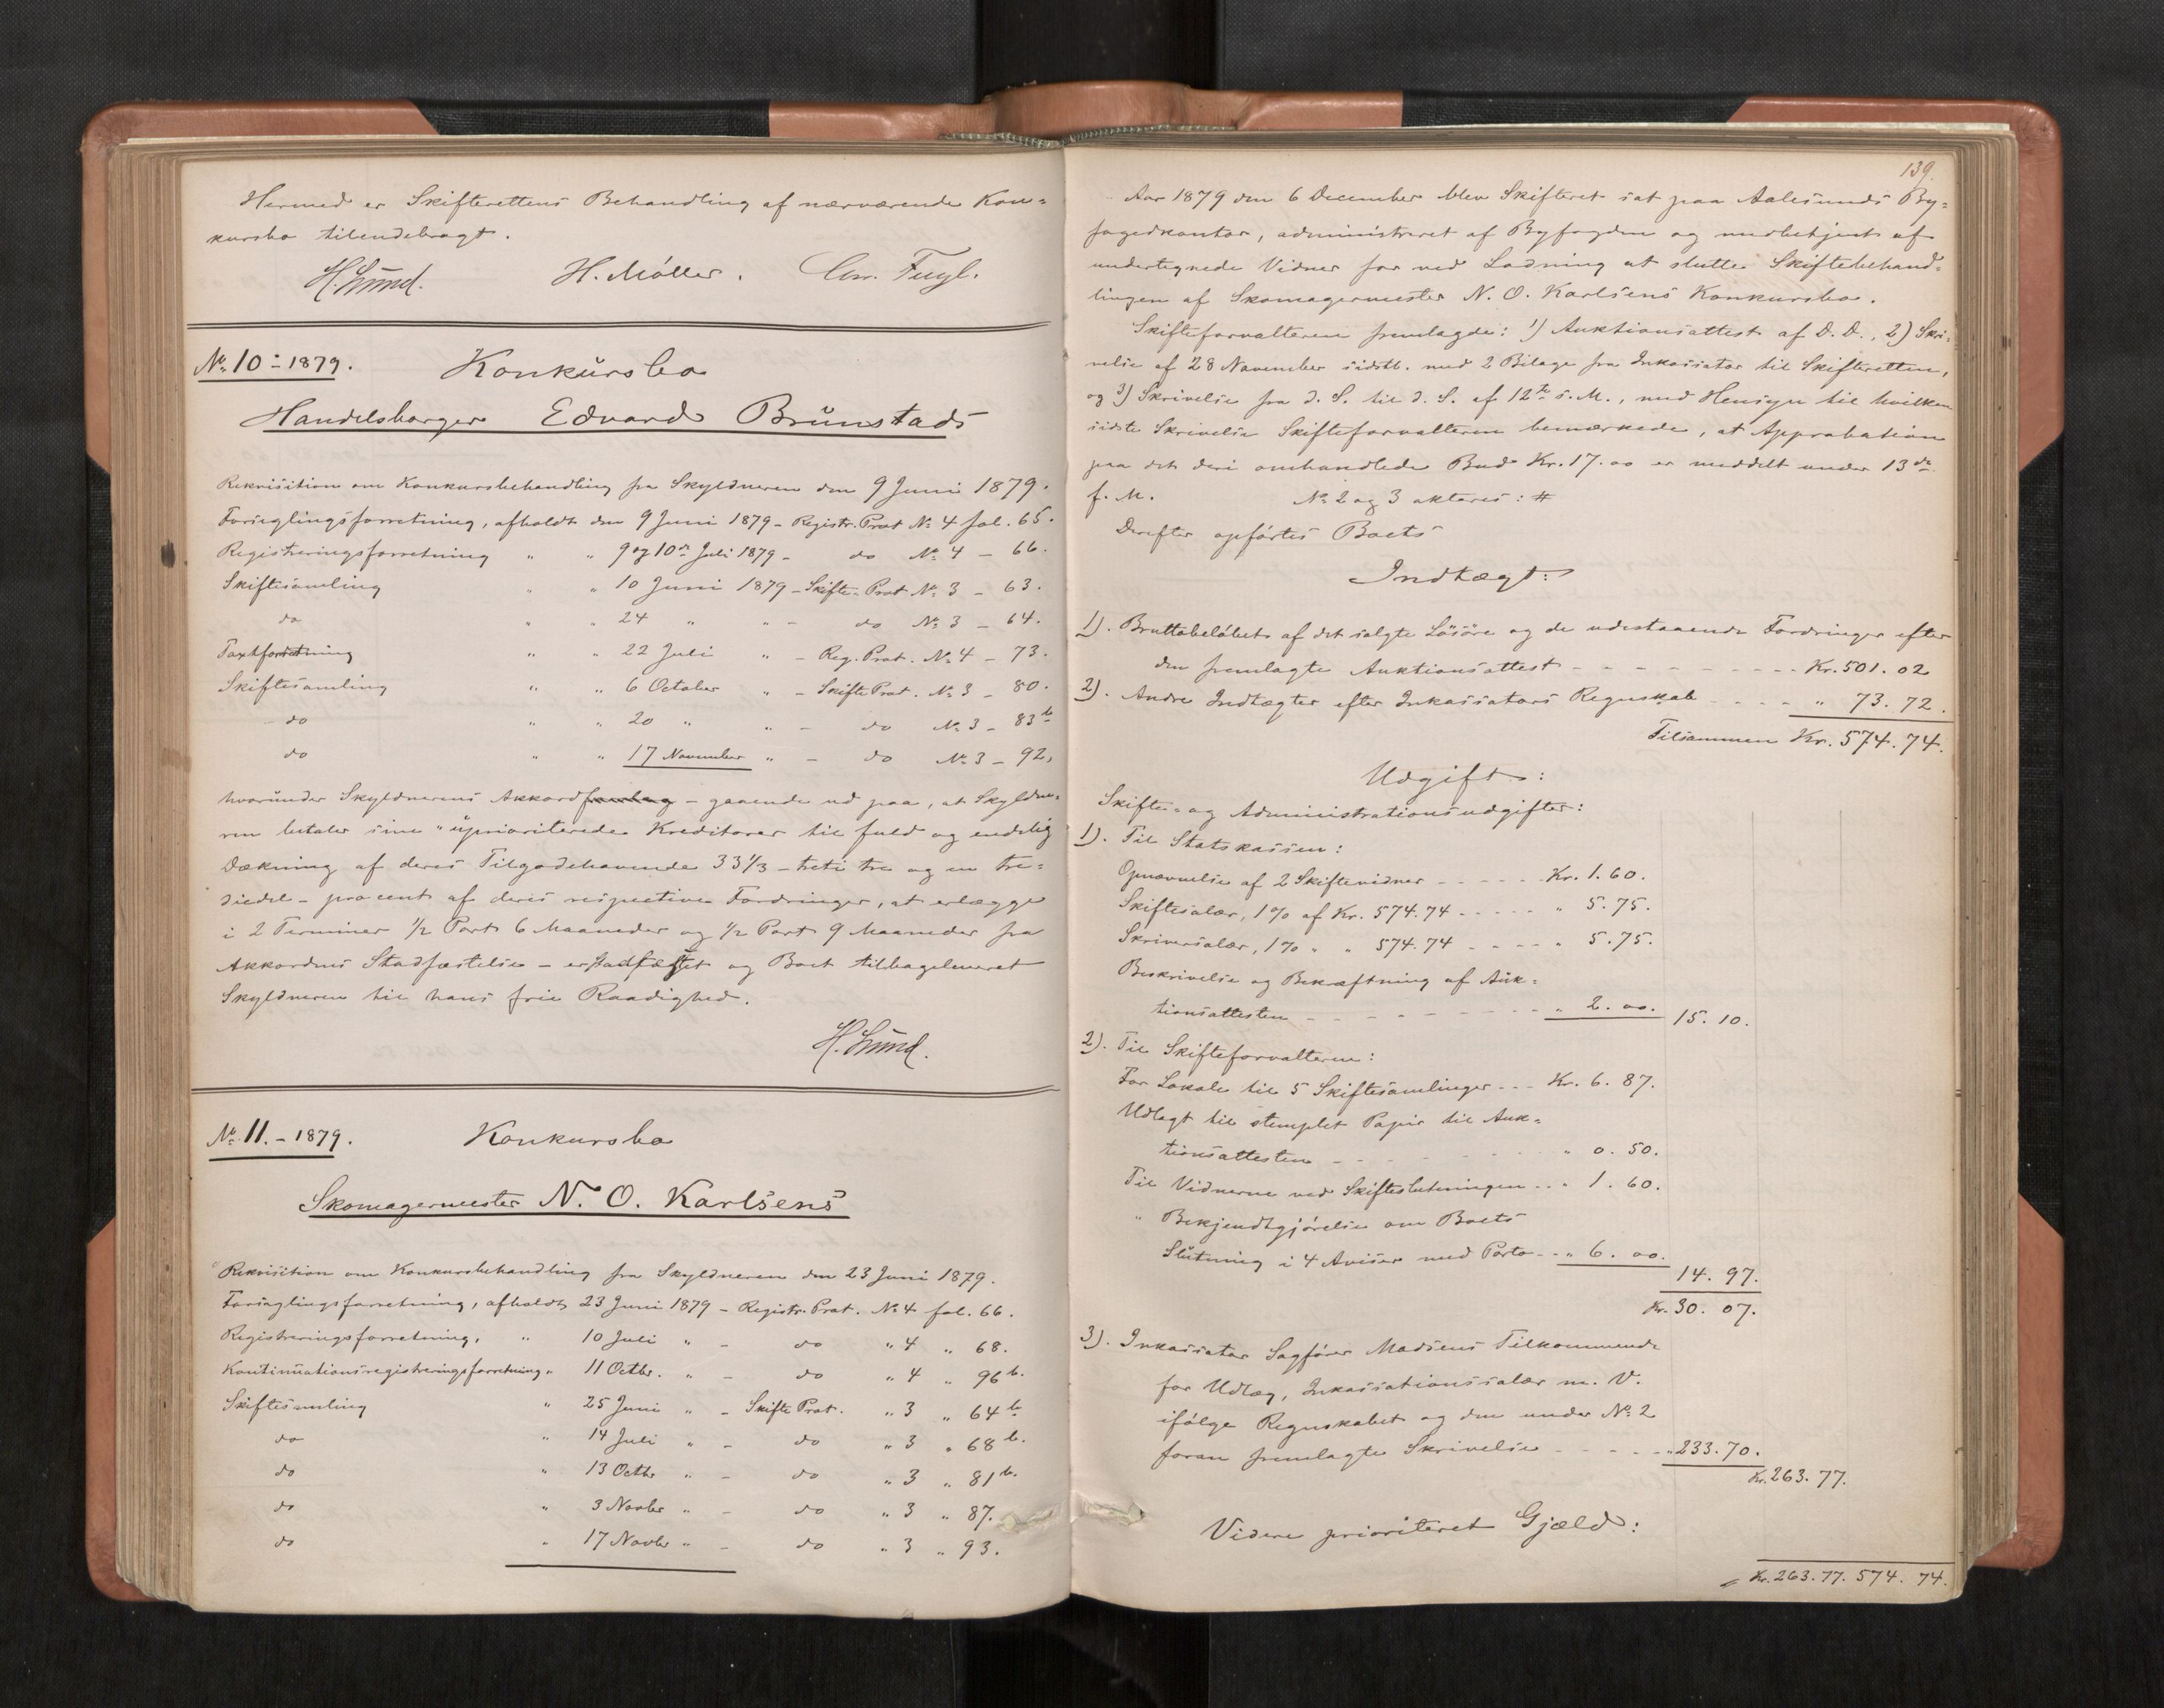 Hermed er Skifterettens Behandling af nærværende Kon-
kursbo tilendebragt.
H. Lund. H. Møller. Chr. Fugl.
No. 10 - 1879. Konkursbo
Handelsborger Edvard Brunstads
Rekvisition om Konkursbehandling fra Skyldneren den 9 Juni 1879.
Forseglingsforretning, afholdt den 9 Juni 1879 - Registr. Prot No. 4 fol. 65.
Registreringsforretning " " 9 og 10de Juli 1879 - do No. 4 - 66.
Skiftesamling " " 10 Juni 1879 - Skifte-Prot No. 3 - 63.
do " " 24 " " - do No. 3 - 64.
Taxtforretning " " 22 Juli " - Reg. Prot. No. 4 - 73.
Skiftesamling " " 6 October " - Skifte Prot. No. 3 - 80.
do " " 20 " " - do No. 3 - 83b
do " " 17 November " - do No. 3 - 92,
hvorunder Skyldnerens Akkordforslag - gaaende ud paa, at Skyldne-
ren betaler sine uprioriterede Kreditorer til fuld og endelig
Dækning af deres Tilgodehavende 33 1/3 - treti tre og en tre-
diedel - procent af deres respective Fordringer, at erlægge
i 2 Terminer 1/2 Part 6 Maaneder og 1/2 Part 9 Maaneder fra
Akkordens Stadfæstelse - er stadfæstet og Boet tilbageleveret
Skyldneren til hans frie Raadighed.
H. Lund.
No. 11. - 1879. Konkursbo
Skomagermester N. O. Karlsens
Rekvisition om Konkursbehandling fra Skyldneren den 23 Juni 1879.
Forseglingsforretning, afholdt 23 Juni 1879 - Registr. Prot. No. 4 fol. 66.
Registreringsforretning, " 10 Juli " - do " 4 " 68.
Kontinuationsregistreringsforretning " 11 Octbr. " - do " 4 " 96b.
Skiftesamling " 25 Juni " - Skifte Prot. " 3 " 64b
do " 14 Juli " - do " 3 " 68b.
do " 13 Octbr " - do " 3 " 81b.
do " 3 Novbr " - do " 3 " 87.
do " 17 Novbr " - do " 3 " 93.
139.
Aar 1879 den 6 December blev Skifteret sat paa Aalesunds By-
fogedkontor, administreret af Byfogden og medbetjent af
undertegnede Vidner for ved Lodning at slutte Skiftebehand-
lingen af Skomagermester N. O. Karlsens Konkursbo.
Skifteforvalteren fremlagde: 1) Auktionsattest af D. D., 2) Skri-
velse af 28 November sidstl. med 2 Bilage fra Inkassator til Skifteretten,
og 3) Skrivelse fra d. S. til d. S. af 12te s. M., med Hensyn til hvilken
sidste Skrivelse Skifteforvalteren bemærkede, at Approbation
paa det deri omhandlede Bud Kr. 17.00 er meddelt under 13de
f. M. No. 2 og 3 akteres: #
Derefter opførtes Boets
Indtægt:
1). Bruttobeløbet af det solgte Løsøre og de udestaaende Fordringer efter
den fremlagte Auktionsattest - - - - - - - - - - Kr. 501. 02
2). Andre Indtægter efter Inkassators Regnskab - - - - " 73. 72.
Tilsammen Kr. 574. 74.
Udgift:
Skifte- og Administrationsudgifter:
1). Til Statskassen:
Opnævnelse af 2 Skiftevidner - - - - - Kr. 1. 60.
Skiftesalær, 1% af Kr. 574.74 - - - - - " 5. 75.
Skriversalær, 1% " " 574.74 - - - - " 5. 75.
Beskrivelse og Bekræftning af Auk-
tionsattesten - - - - - - - - - " 2. 00. 15. 10.
2). Til Skifteforvalteren:
For Lokale til 5 Skiftesamlinger - - - Kr. 6. 87.
Udlagt til stemplet Papir til Auk-
tionsattesten - - - - - - - " 0. 50.
Til Vidnerne ved Skifteslutningen - - " 1. 60.
" Bekjendtgjørelse om Boets
Slutning i 4 Aviser med Porto - - " 6. 00.
14. 97.
Kr. 30. 07.
3). Inkassator Sagfører Madsens Tilkommende
for Udlæg, Inkassationssalær m. V.
ifølge Regnskabet og den under No. 2
foran fremlagte Skrivelse - - - - - " 233. 70.
Kr. 263. 77.
Videre prioriteret Gjæld:
Kr. 263. 77. 574. 74.